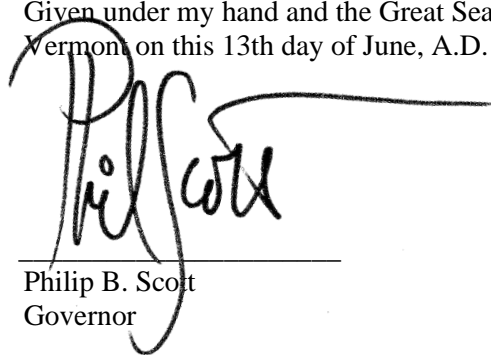 Given under my hand and the Great Sea
Vermont on this 13th day of June, A.D.
Phil Scott
Philip B. Scott
Governor